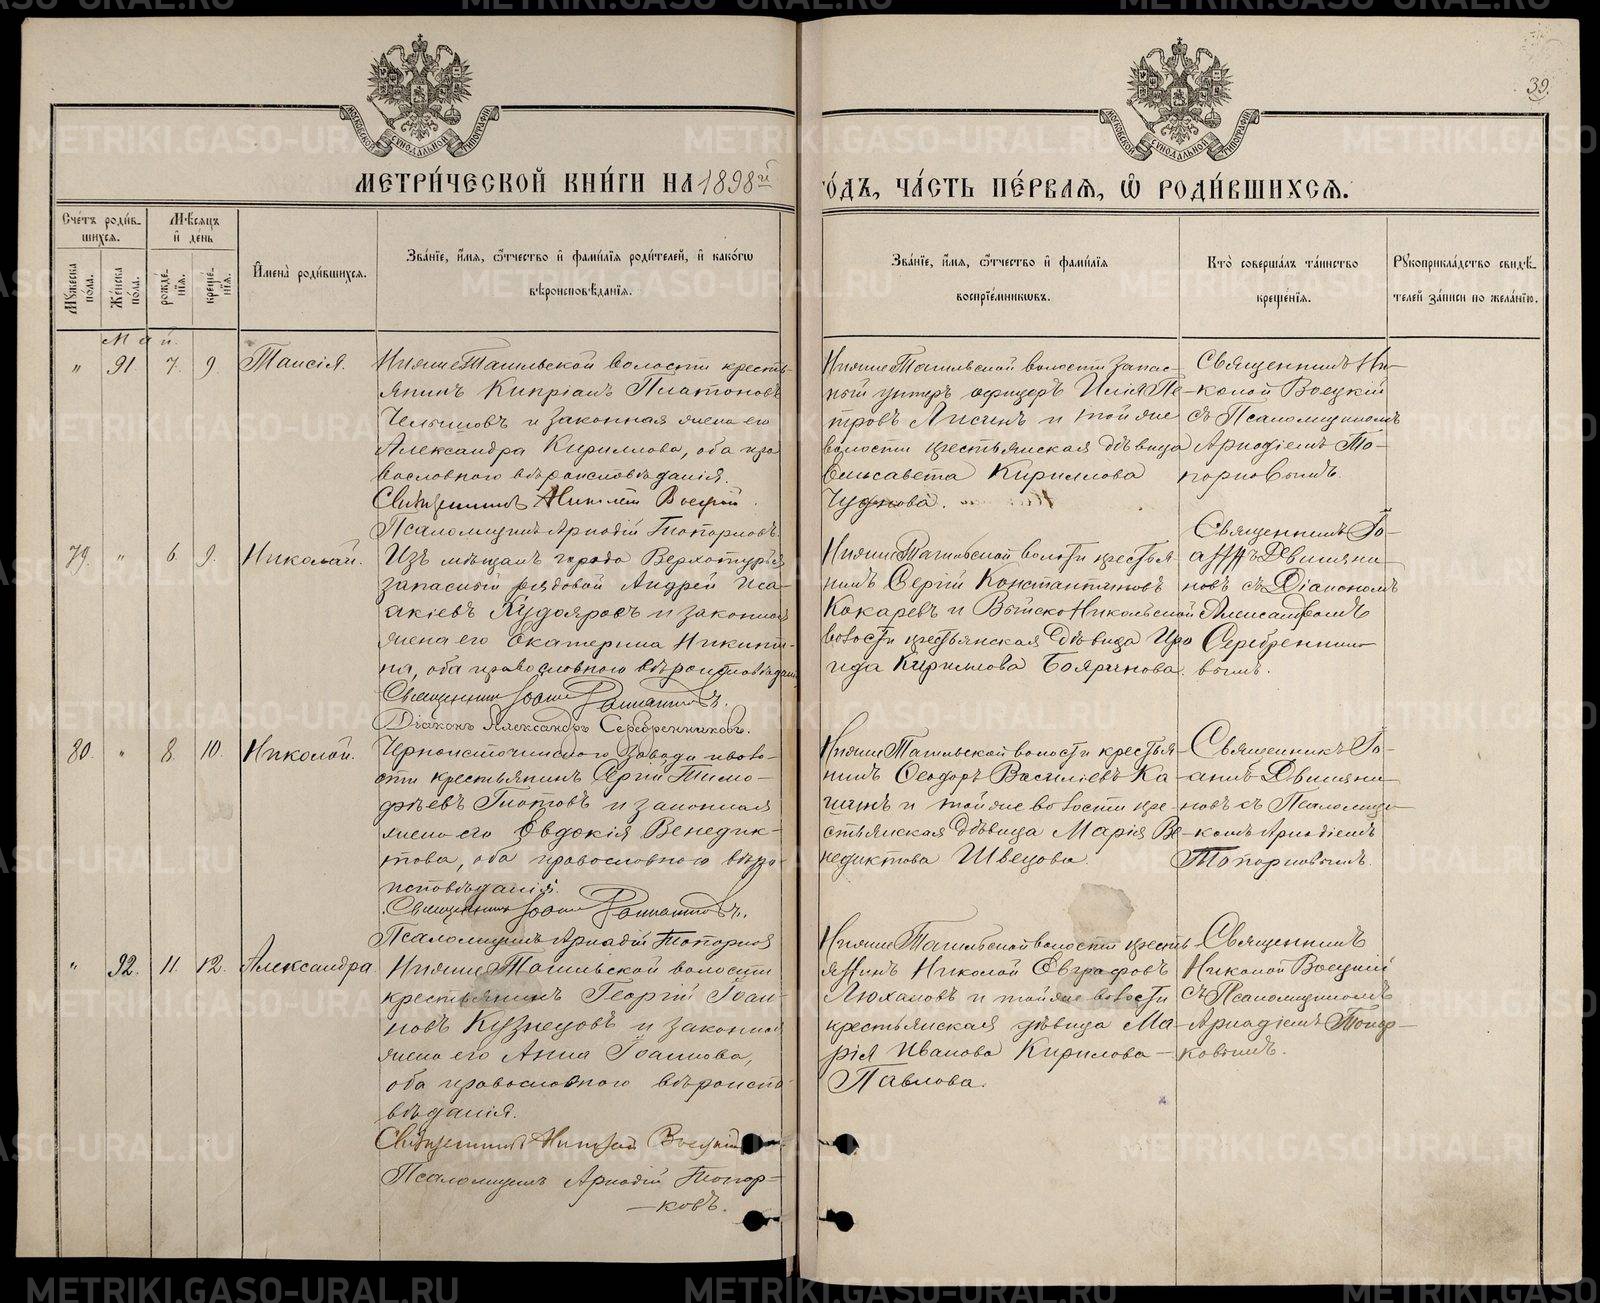 39.
МЕТРИ́ЧЕСКОЙ КНИ́ГИ НА 1898й
ГО́ДЪ, ЧА́СТЬ ПЕ́РВАЯ, Ѿ РОДИ́ВШИХСЯ.
Сче́тъ роди́вшихся.
Му́жеска пола.
Же́нска пола.
Мѣсяцъ и де́нь
рожде́нїя.
креще́нїя.
Имена̀ роди́вшихся.
Зва́нїе, и́мя, ѻ҆́тчество и фами́лїя роди́телей, и како́гѡ
вѣроисповѣ́данїя.
Зва́нїе, и́мя, ѻ҆́тчество и фами́лїя
воспрїе́мникѡвъ.
Кто̀ соверша́лъ та́инство
креще́нїя.
Рꙋкоприкла́дство свидѣ́-
телей за́писи по жела́нїю.
Май.
" 91 7. 9. Таисія.
Нижне Тагильской волости кресть-
янинъ Кипріанъ Платоновъ
и законная жена его
Александра Кириллова, оба пра
вославнаго вѣроисповѣданія.
Священникъ Николай Воецкій.
Псаломщикъ Аркадій Топорковъ.
Нижне Тагильской волости запас-
ный унтеръ офицеръ Илія Пе-
тровъ Лисинъ и той же
волости крестьянская дѣвица
Елисавета Кириллова
Чуднова.
Священникъ Ни-
колай Воецкій
съ Псаломщикомъ
Аркадіемъ То-
порковымъ.
79. " 6. 9. Николай.
Изъ мѣщанъ города Верхотурья
запасный рядовой Андрей Иса-
акіевъ Кудояровъ и законная
жена его Екатерина Никити-
на, оба православнаго вѣроисповѣданія
Священникъ Іоаннъ
Діаконъ Александръ Серебренниковъ.
Нижне Тагильской волости крестья-
нинъ Сергій Константиновъ
Кокаревъ и Выйско Никольской
волости крестьянская дѣвица Ира
ида Кириллова Бояринова.
Священникъ Іо-
аннъ Двиняни-
новъ съ Діакономъ
Александромъ
Серебренни-
вымъ.
80. " 8. 10. Николай.
Черноисточинскаго завода и воло-
сти крестьянинъ Сергій Тимо-
феевъ Глотовъ и законная
жена его Евдокія Венедик-
това, оба православнаго вѣро-
исповѣданія.
Священникъ Іоаннъ
Псаломщикъ Аркадій Топорков
Нижне Тагильской волости крестья-
нинъ Ѳеодоръ Васильевъ Ка-
шинъ и той же волости кре-
стьянская дѣвица Марія Ве-
недиктова Швецова.
Священникъ Іо-
аннъ Двиняни-
новъ съ Псаломщи-
комъ Аркадіемъ
Топорковымъ.
" 92. 11. 12. Александра.
Нижне Тагильской волости
крестьянинъ Георгій Іоан-
новъ Кузнецовъ и законная
жена его Анна Іоаннова,
оба православнаго вѣроиспо-
вѣданія.
Священникъ Николай Воецкій
Псаломщикъ Аркадій Топор-
ковъ.
Нижне Тагильской волости кресть-
янинъ Николай Евграфовъ
Люхановъ и той же волости
крестьянская дѣвица Ма-
рія Иванова Кирилова-
Павлова.
Священникъ
Николай Воецкій
съ Псаломщикомъ
Аркадіемъ Топор-
ковымъ.
METRIKI.GASO-URAL.RU